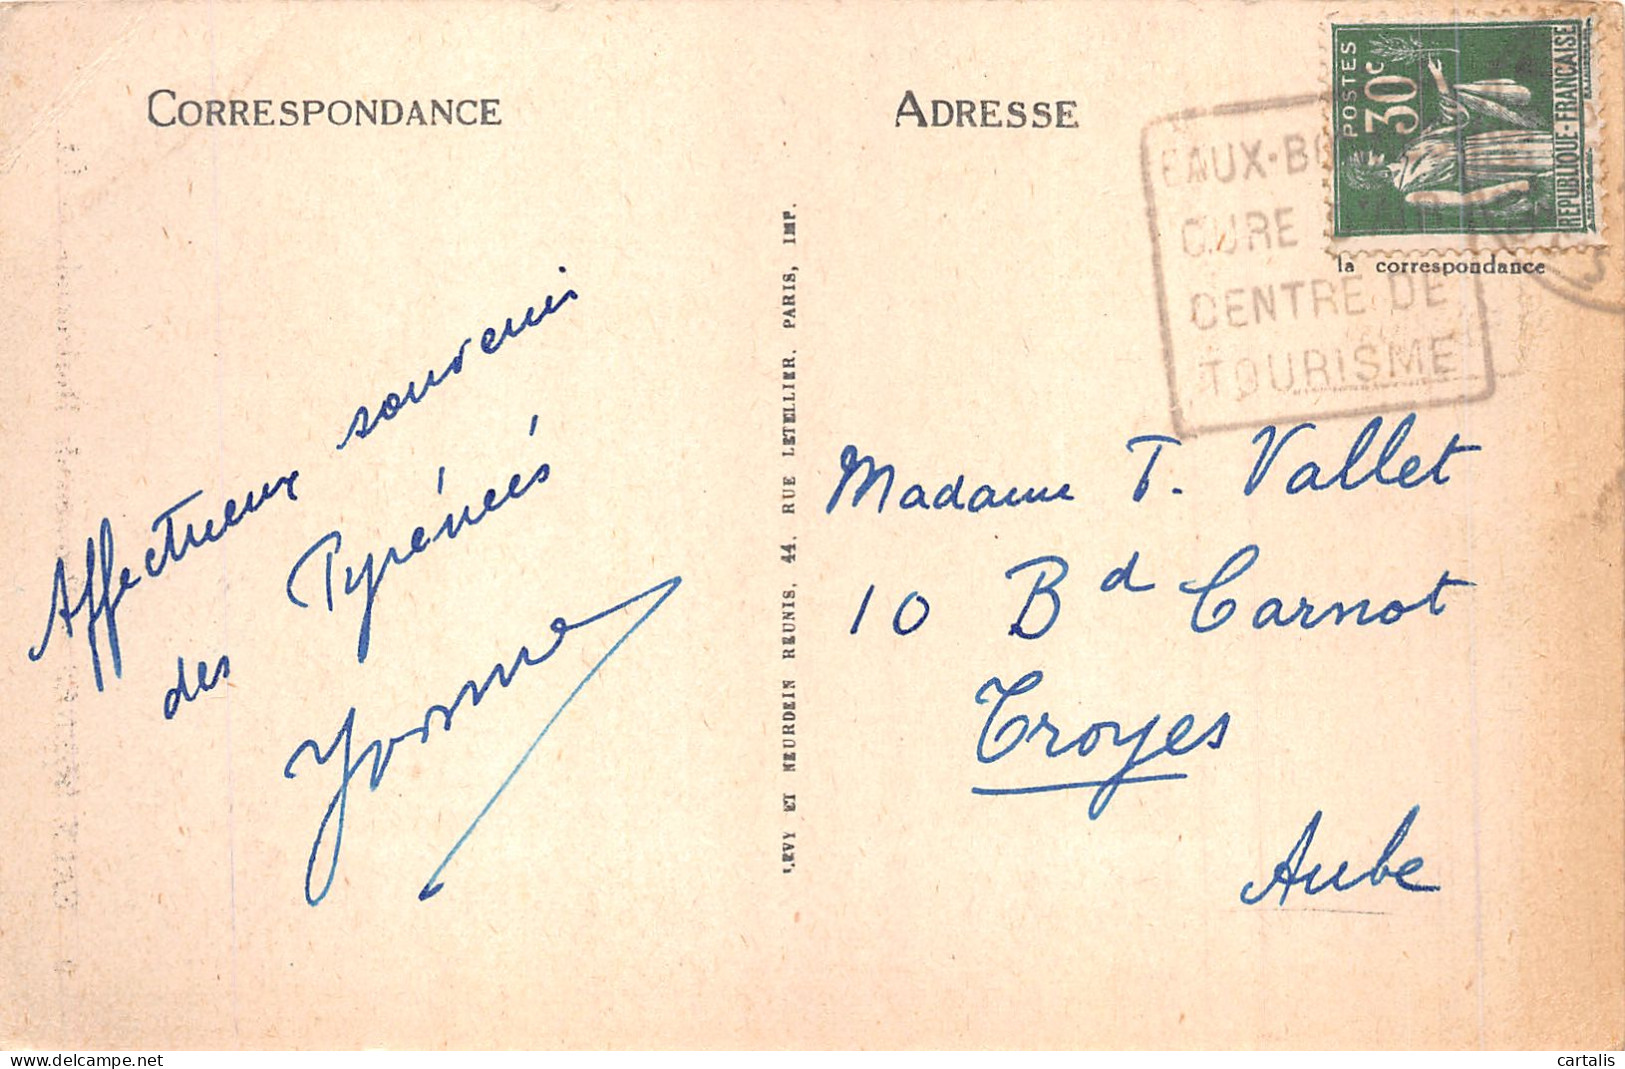 CORRESPONDANCE
ADRESSE
POSTES
30c
REPUBLIQUE-FRANÇAISE
EAUX-BO
CURE D'AIR
CENTRE DE
TOURISME
la correspondance
Affectueux souvenir
des Pyrénées
Yvonne
LEVY ET NEURDEIN REUNIS, 44, RUE LETELLIER, PARIS, IMP.
Madame T. Vallet
10 Bd Carnot
Troyes
Aube
delcampe.net
cartalis